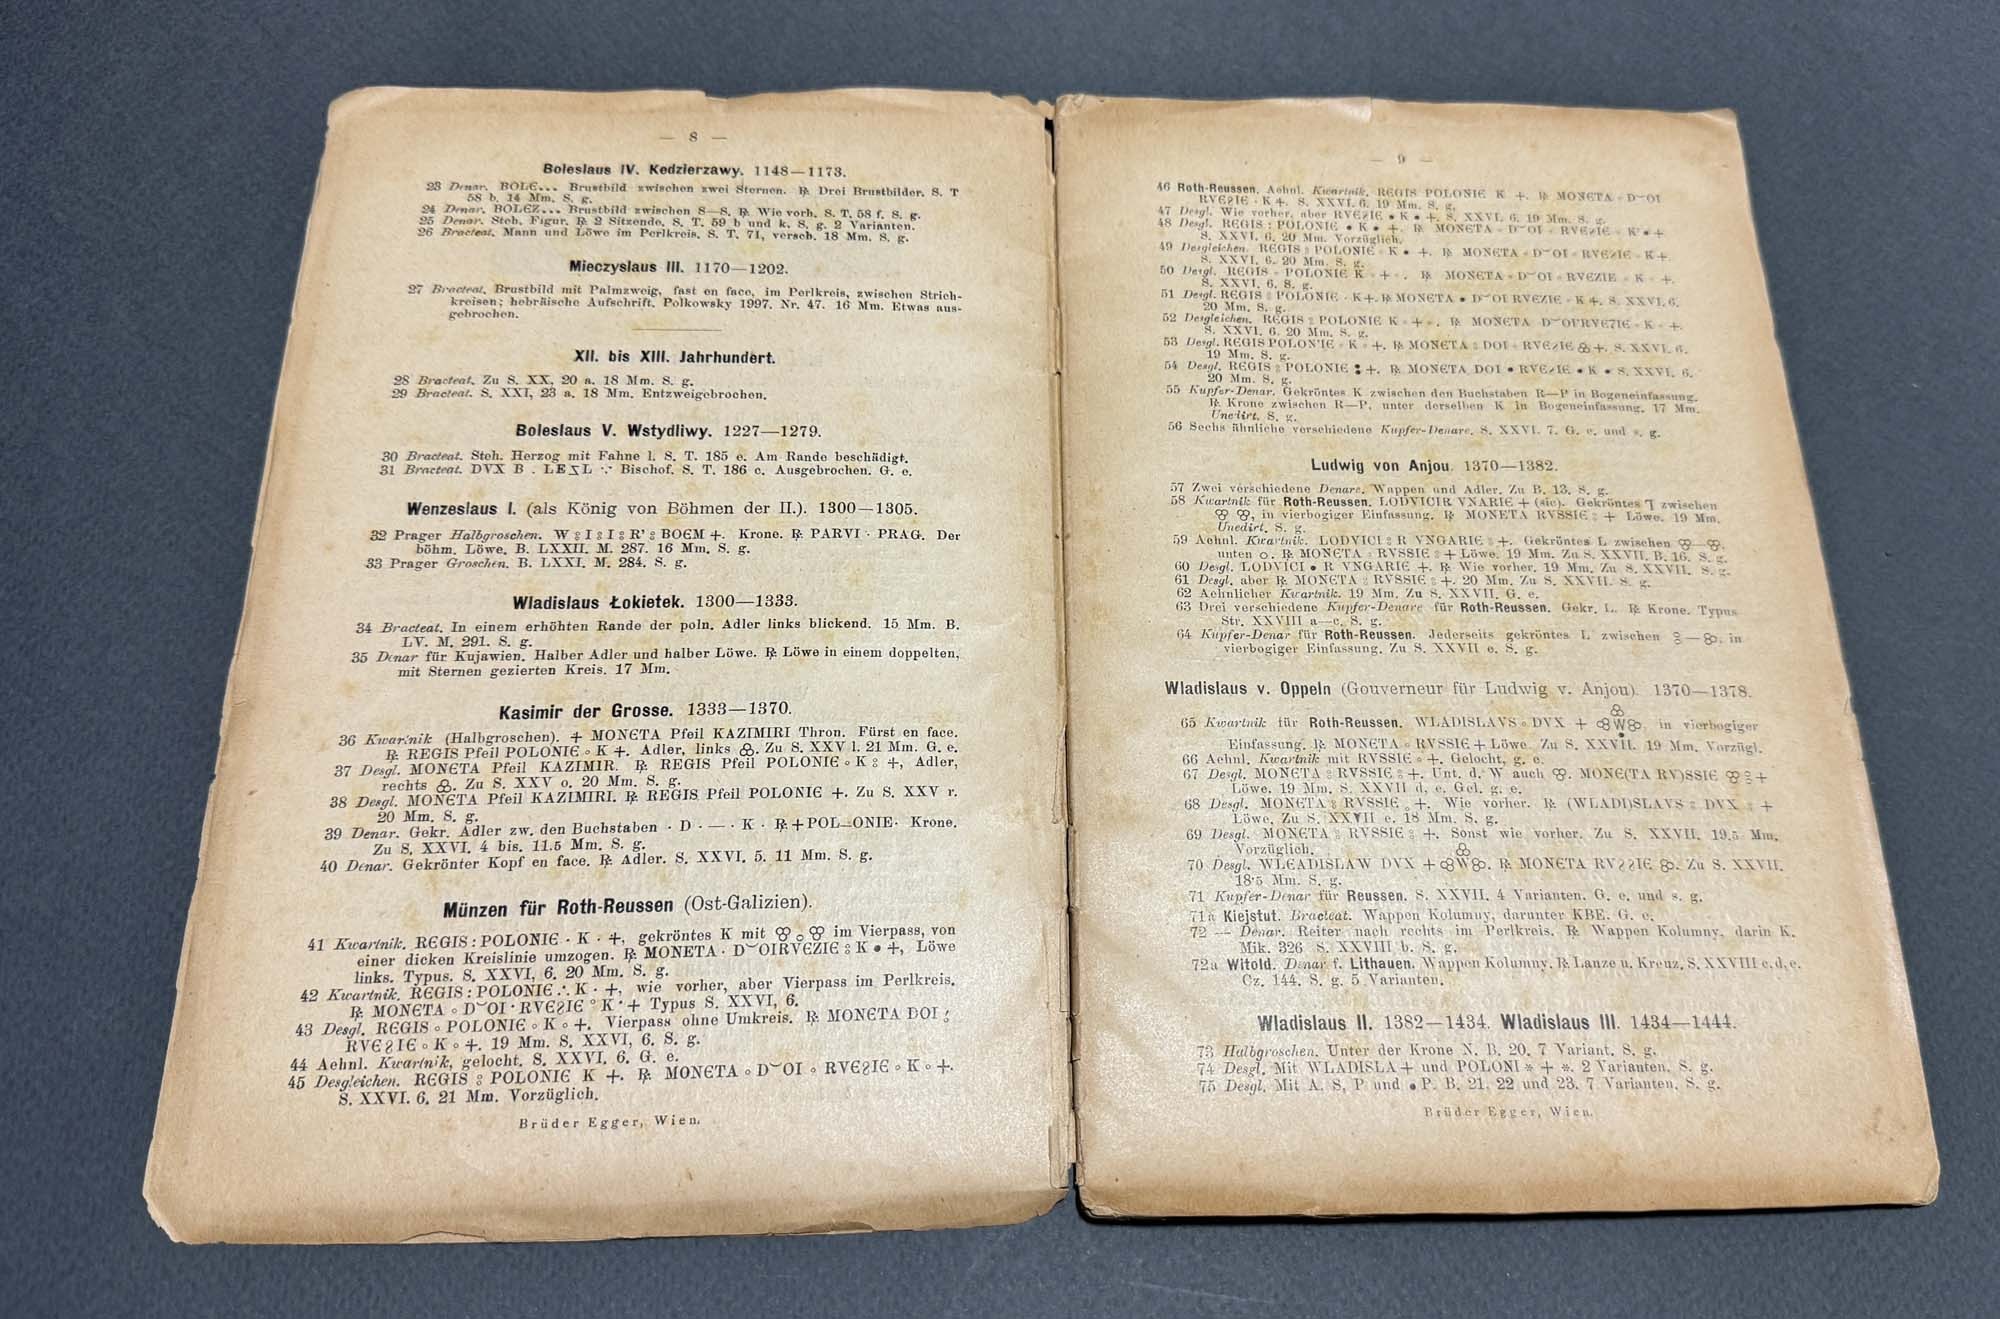 — 8 —
Boleslaus IV. Kedzierzawy. 1148—1173.
23 Denar. BOLE... Brustbild zwischen zwei Sternen. ℞ Drei Brustbilder. S. T
58 b. 14 Mm. S. g.
24 Denar. BOLEZ... Brustbild zwischen S—S. ℞ Wie vorh. S. T. 58 f. S. g.
25 Denar. Steh. Figur. ℞ 2 Sitzende. S. T. 59 b und k. S. g. 2 Varianten.
26 Bracteat. Mann und Löwe im Perlkreis. S. T. 71, versch. 18 Mm. S. g.
Mieczyslaus III. 1170—1202.
27 Bracteat. Brustbild mit Palmzweig, fast en face, im Perlkreis, zwischen Strich-
kreisen; hebräische Aufschrift. Polkowsky 1997. Nr. 47. 16 Mm. Etwas aus-
gebrochen.
XII. bis XIII. Jahrhundert.
28 Bracteat. Zu S. XX, 20 a. 18 Mm. S. g.
29 Bracteat. S. XXI, 23 a. 18 Mm. Entzweigebrochen.
Boleslaus V. Wstydliwy. 1227—1279.
30 Bracteat. Steh. Herzog mit Fahne l. S. T. 185 e. Am Rande beschädigt.
31 Bracteat. DVX B . LEΣL ∵ Bischof. S. T. 186 c. Ausgebrochen. G. e.
Wenzeslaus I. (als König von Böhmen der II.). 1300—1305.
32 Prager Halbgroschen. W ° I ° I ° R' ° BOEM +. Krone. ℞ PARVI · PRAG. Der
böhm. Löwe. B. LXXII. M. 287. 16 Mm. S. g.
33 Prager Groschen. B. LXXI. M. 284. S. g.
Wladislaus Łokietek. 1300—1333.
34 Bracteat. In einem erhöhten Rande der poln. Adler links blickend. 15 Mm. B.
LV. M. 291. S. g.
35 Denar für Kujawien. Halber Adler und halber Löwe. ℞ Löwe in einem doppelten,
mit Sternen gezierten Kreis. 17 Mm.
Kasimir der Grosse. 1333—1370.
36 Kwartnik (Halbgroschen). + MONЄTA Pfeil KAZIMIRI Thron. Fürst en face.
℞ RЄGIS Pfeil POLONIЄ ∘ K +. Adler, links. Zu S. XXV l. 21 Mm. G. e.
37 Desgl. MONЄTA Pfeil KAZIMIR. ℞ RЄGIS Pfeil POLONIЄ ∘ K ° +, Adler,
rechts. Zu S. XXV o. 20 Mm. S. g.
38 Desgl. MONЄTA Pfeil KAZIMIRI. ℞ RЄGIS Pfeil POLONIЄ +. Zu S. XXV r.
20 Mm. S. g.
39 Denar. Gekr. Adler zw. den Buchstaben · D · — · K · ℞ + POL—ONIE· Krone.
Zu S. XXVI. 4 bis. 11.5 Mm. S. g.
40 Denar. Gekrönter Kopf en face. ℞ Adler. S. XXVI. 5. 11 Mm. S. g.
Münzen für Roth-Reussen (Ost-Galizien).
41 Kwartnik. RЄGIS : POLONIЄ · K · +, gekröntes K mit ∘ im Vierpass, von
einer dicken Kreislinie umzogen. ℞ MONЄTA · D⌣OIRVЄZIЄ ° K • +, Löwe
links. Typus. S. XXVI, 6. 20 Mm. S. g.
42 Kwartnik. RЄGIS : POLONIЄ ∴ K · +, wie vorher, aber Vierpass im Perlkreis.
℞ MONЄTA ∘ D⌣OI · RVЄƧIЄ ° K · + Typus S. XXVI, 6.
43 Desgl. RЄGIS ∘ POLONIЄ ∘ K ∘ +. Vierpass ohne Umkreis. ℞ MONЄTA DOI :
RVЄƧIЄ ∘ K ∘ +. 19 Mm. S. XXVI, 6. S. g.
44 Aehnl. Kwartnik, gelocht. S. XXVI. 6. G. e.
45 Desgleichen. RЄGIS ° POLONIЄ K +. ℞ MONЄTA ∘ D⌣OI ∘ RVЄƧIЄ ∘ K ∘ +.
S. XXVI. 6. 21 Mm. Vorzüglich.
Brüder Egger, Wien.
— 9 —
46 Roth-Reussen. Aehnl. Kwartnik. RЄGIS POLONIЄ K +. ℞ MONЄTA ∘ D⌣OI
RVЄƧIЄ · K +. S. XXVI. 6. 19 Mm. S. g.
47 Desgl. Wie vorher, aber RVЄƧIЄ • K • +. S. XXVI. 6. 19 Mm. S. g.
48 Desgl. RЄGIS : POLONIЄ • K • +. ℞ MONЄTA ∘ D⌣OI ∘ RVЄƧIЄ ∘ K' • +
S. XXVI. 6. 20 Mm. Vorzüglich.
49 Desgleichen. RЄGIS ° POLONIЄ K • +, ℞ MONЄTA ∘ D⌣OI ∘ RVЄƧIЄ ∘ K +.
S. XXVI. 6. 20 Mm. S. g.
50 Desgl. RЄGIS ∘ POLONIЄ K ∘ + ∘. ℞ MONЄTA ∘ D⌣OI ∘ RVЄZIЄ ∘ K ∘ +.
S. XXVI. 6. S. g.
51 Desgl. RЄGIS ° POLONIЄ · K +. ℞ MONЄTA • D⌣OI RVЄZIЄ ∘ K +. S. XXVI. 6.
20 Mm. S. g.
52 Desgleichen. RЄGIS ° POLONIЄ K ∘ + ∘. ℞ MONЄTA D⌣OI'RVЄ7IЄ ∘ K ∘ +.
S. XXVI. 6. 20 Mm. S. g.
53 Desgl. RЄGIS POLON'IЄ ∘ K ∘ +. ℞ MONЄTA ° DOI ∘ RVЄƧIЄ +. S. XXVI. 6.
19 Mm. S. g.
54 Desgl. RЄGIS ° POLONIЄ : +. ℞ MONЄTA DOI • RVЄƧIЄ • K • S. XXVI. 6.
20 Mm. S. g.
55 Kupfer-Denar. Gekröntes K zwischen den Buchstaben R—P in Bogeneinfassung.
℞ Krone zwischen R—P, unter derselben K in Bogeneinfassung. 17 Mm.
Unedirt. S. g.
56 Sechs ähnliche verschiedene Kupfer-Denare. S. XXVI. 7. G. e. und s. g.
Ludwig von Anjou. 1370—1382.
57 Zwei verschiedene Denare. Wappen und Adler. Zu B. 13. S. g.
58 Kwartnik für Roth-Reussen. LODVICIR VNARIЄ + (sic). Gekröntes zwischen
in vierbogiger Einfassung. ℞ MONЄTA RVSSIЄ ° + Löwe. 19 Mm.
Unedirt. S. g.
59 Aehnl. Kwartnik. LODVICI ° R VNGARIЄ ° +. Gekröntes L zwischen —,
unten o. ℞ MONЄTA ° RVSSIЄ ° + Löwe. 19 Mm. Zu S. XXVII. B. 16. S. g.
60 Desgl. LODVICI • R VNGARIЄ +. ℞ Wie vorher. 19 Mm. Zu S. XXVII. S. g.
61 Desgl. aber ℞ MONЄTA ° RVSSIЄ ° +. 20 Mm. Zu S. XXVII. S. g.
62 Aehnlicher Kwartnik. 19 Mm. Zu S. XXVII. G. e.
63 Drei verschiedene Kupfer-Denare für Roth-Reussen. Gekr. L. ℞ Krone. Typus
Str. XXVIII a—c. S. g.
64 Kupfer-Denar für Roth-Reussen. Jederseits gekröntes L zwischen —, in
vierbogiger Einfassung. Zu S. XXVII e. S. g.
Wladislaus v. Oppeln (Gouverneur für Ludwig v. Anjou). 1370—1378.
65 Kwartnik für Roth-Reussen. WLADISLAVS ∘ DVX + W, in vierbogiger
Einfassung. ℞ MONЄTA ∘ RVSSIЄ + Löwe. Zu S. XXVII. 19 Mm. Vorzügl.
66 Aehnl. Kwartnik mit RVSSIЄ ∘ +. Gelocht, g. e.
67 Desgl. MONЄTA ° RVSSIЄ ° +. Unt. d. W auch. MONЄ(TA RV)SSIЄ ° +
Löwe. 19 Mm. S. XXVII d, e. Gel. g. e.
68 Desgl. MONЄTA ° RVSSIЄ ∘ +. Wie vorher. ℞ (WLADI)SLAVS ° DVX ° +
Löwe. Zu S. XXVII e. 18 Mm. S. g.
69 Desgl. MONЄTA ° RVSSIЄ ° +. Sonst wie vorher. Zu S. XXVII. 19.5 Mm.
Vorzüglich.
70 Desgl. WLЄADISLAW DVX + W. ℞ MONЄTA RVƧƧIЄ. Zu S. XXVII.
18·5 Mm. S. g.
71 Kupfer-Denar für Reussen. S. XXVII. 4 Varianten. G. e. und s. g.
71a Kiejstut. Bracteat. Wappen Kolumny, darunter KBE. G. e.
72 — Denar. Reiter nach rechts im Perlkreis. ℞ Wappen Kolumny, darin K.
Mik. 326 S. XXVIII b. S. g.
72a Witold. Denar f. Lithauen. Wappen Kolumny. ℞ Lanze u. Kreuz. S. XXVIII c, d, e.
Cz. 144. S. g. 5 Varianten.
Wladislaus II. 1382—1434. Wladislaus III. 1434—1444.
73 Halbgroschen. Unter der Krone N. B. 20. 7 Variant. S. g.
74 Desgl. Mit WLADISLA + und POLONI * + *. 2 Varianten. S. g.
75 Desgl. Mit A. S, P und • P. B. 21, 22 und 23. 7 Varianten. S. g.
Brüder Egger, Wien.